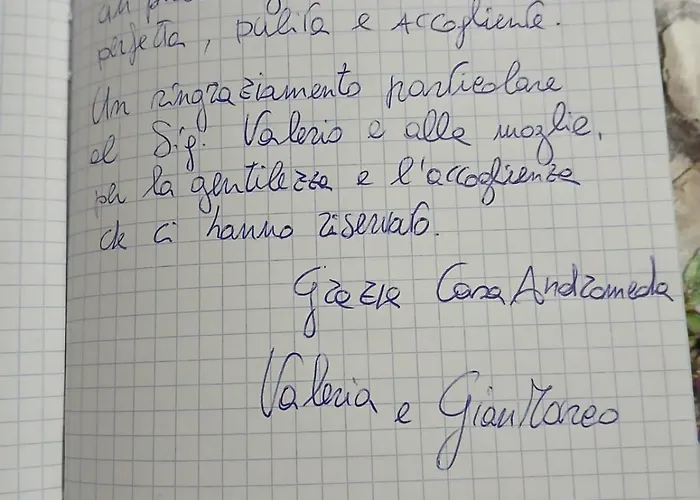 perfetta, pulita e ACCogliente.
Un ringraziamento particolare
al Sig. Valerio e alla moglie,
per la gentilezza e l'accoglienza
che ci hanno riservato.
Grazie Casa Andromeda
Valeria e GianMarco